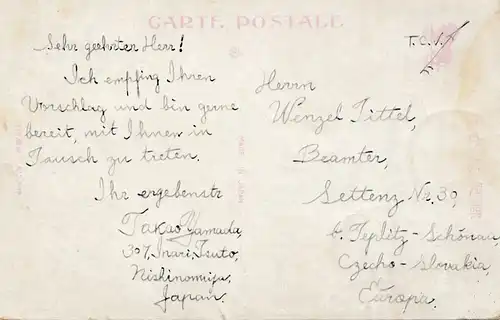 CARTE POSTALE
Sehr geehrter Herr!
Ich empfing Ihren
Vorschlag und bin gerne
bereit, mit Ihnen in
Tausch zu treten.
Ihr ergebenstr
Takao Yamada,
307, Inari, Tsuto,
Nishinomiya,
Japan.
T.C.V.
Herrn
Wenzel Tittel,
Beamter,
Settenz Nr. 30,
b. Teplitz-Schönau,
Czecho-Slovakia,
Europa.